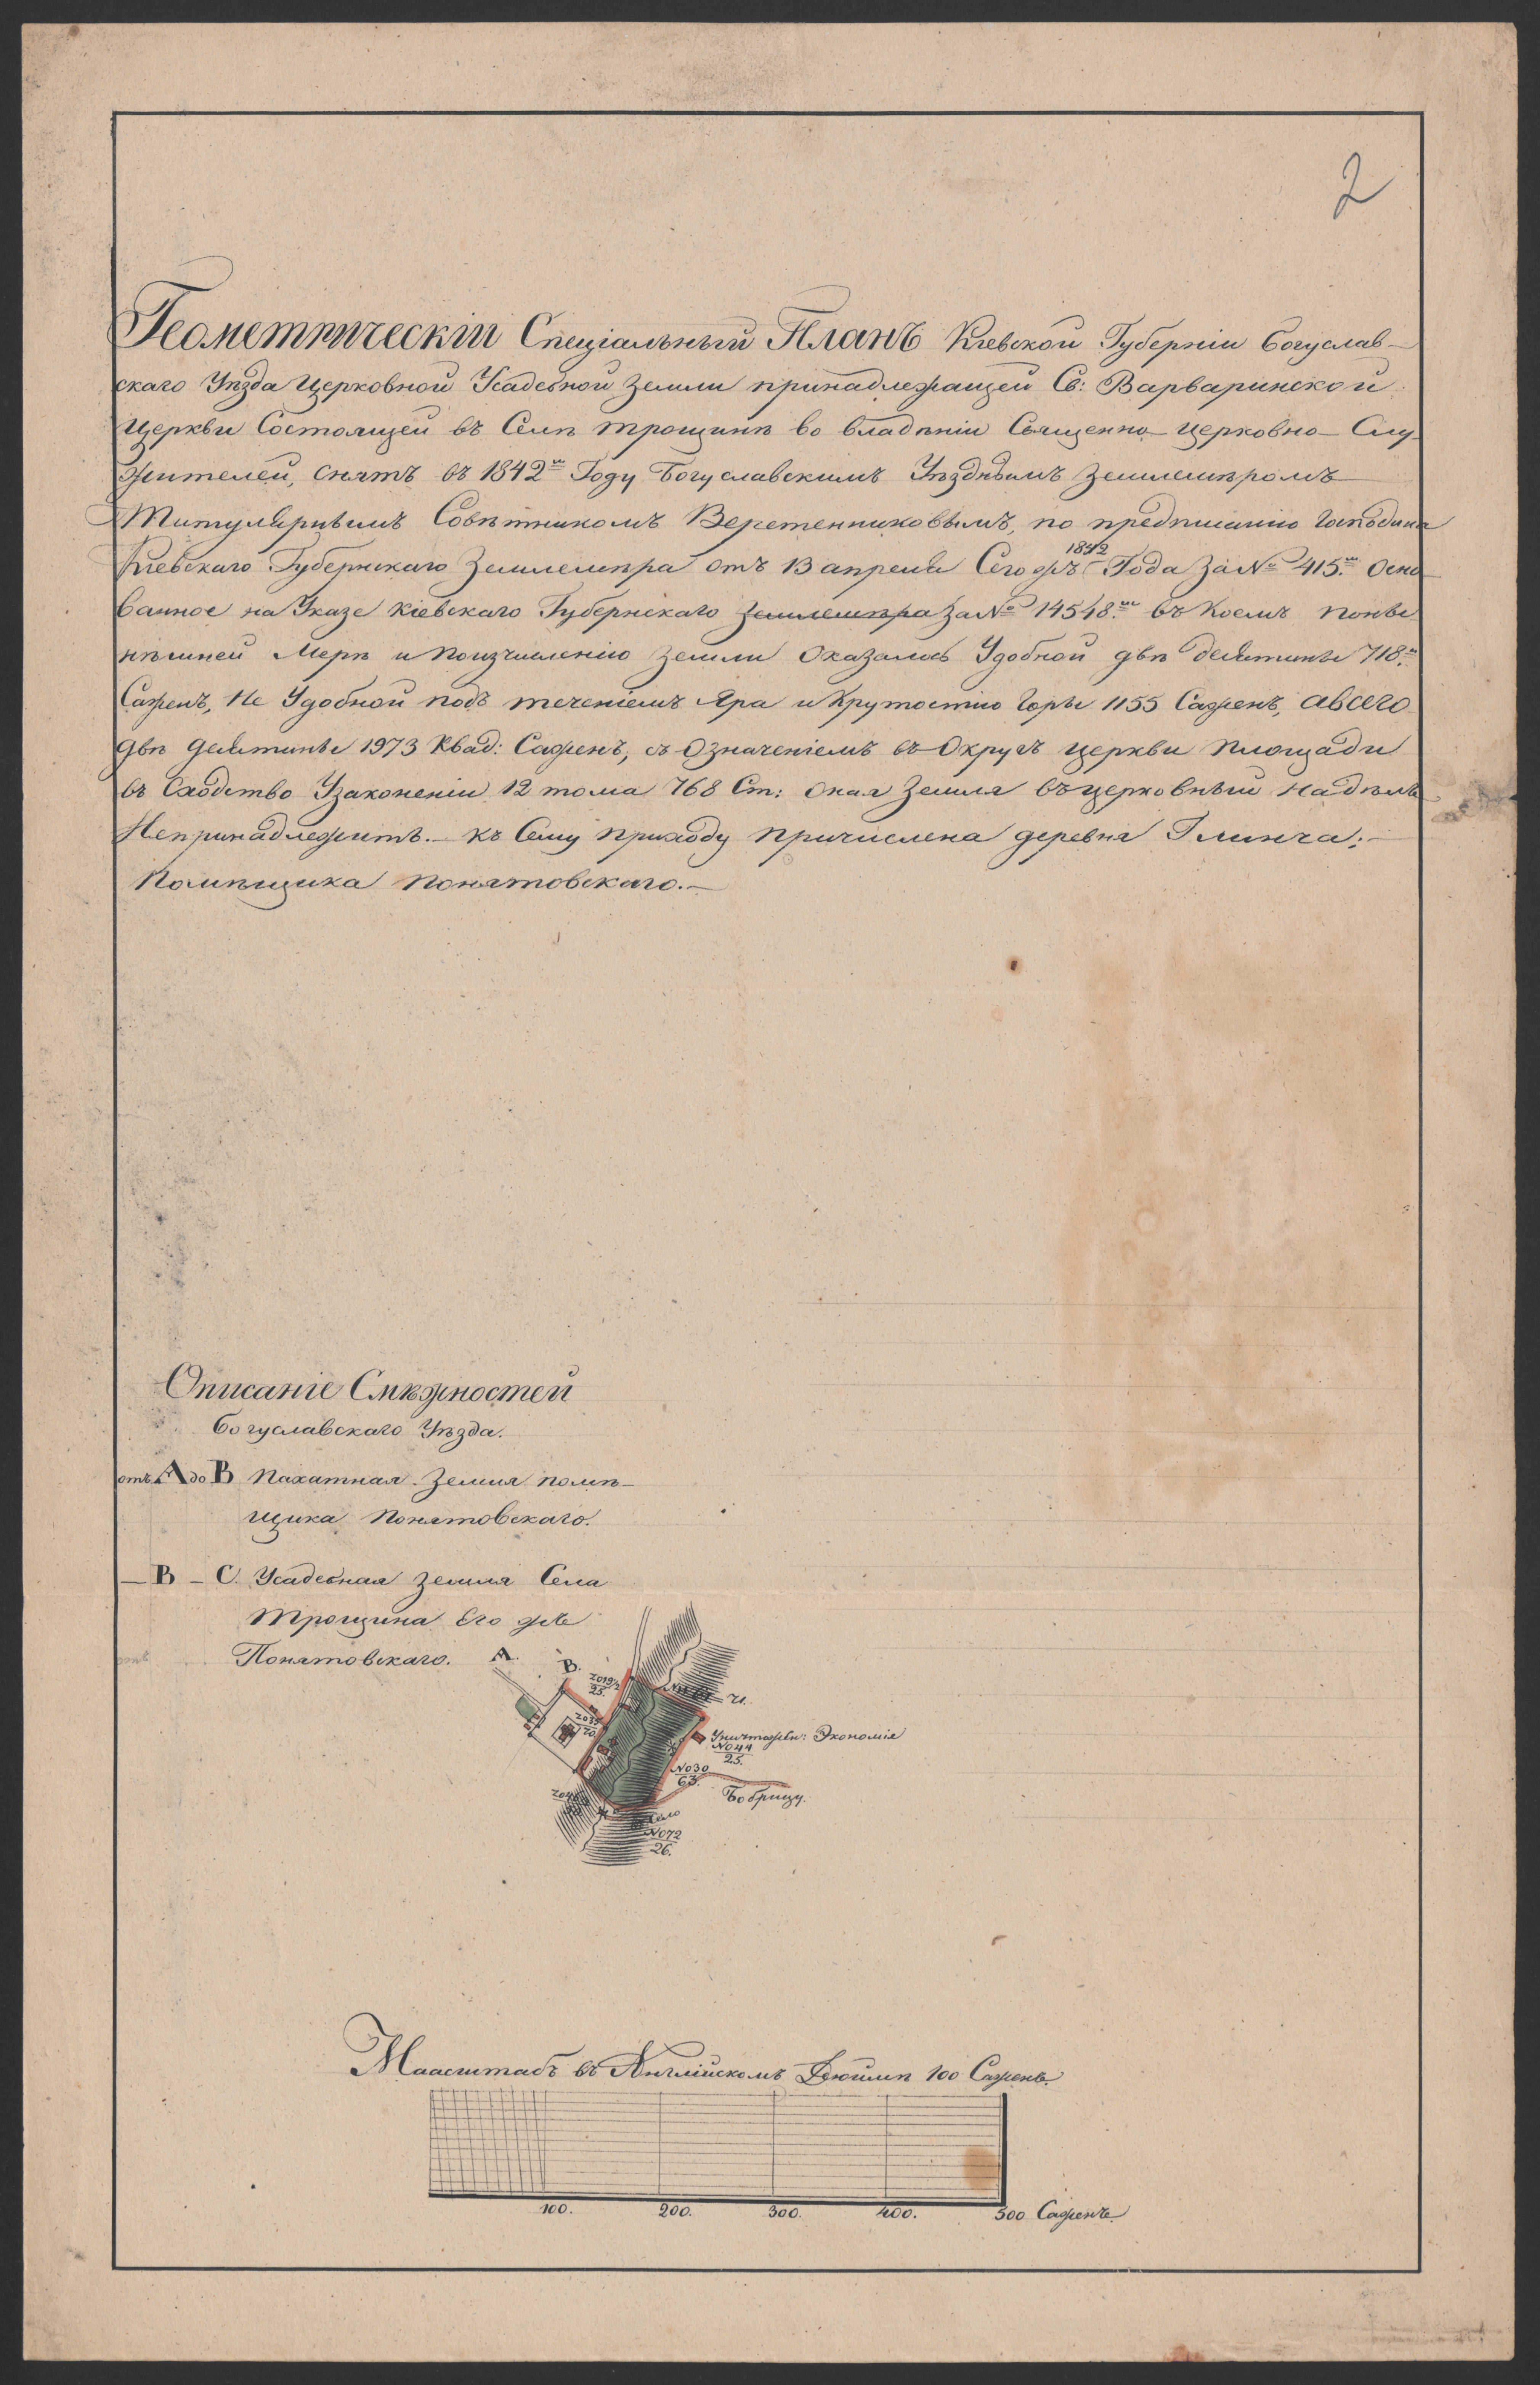 2
Геометрическій Спеціальный Планъ Кіевской Губерніи Богуслав-
скаго Уѣзда Церковной Усадебной Земли принадлежащей Св: Варваринской
Церкви Состоящей въ Селѣ Трощинѣ во владѣніи Священно-Церковно-Слу-
жителей, снятъ въ 1842м Году Богуславскимъ Уѣзднымъ Землемѣромъ
Титулярнымъ Совѣтникомъ Веретенниковымъ, по предписанію Господина
1842
Кіевскаго Губернскаго Землемѣра отъ 13 апреля Сего жъ Года За № 415.м Осно
ванное на Указе Кіевскаго Губернскаго Землемѣра За № 14548.м въ Коемъ поны
нѣшней Мерѣ и поизчисленію Земли Оказалось Удобной двѣ десятины 718.м
Саженъ, Не Удобной подъ теченіемъ Яра и Крутостію Горы 1155 Саженъ, авсего
двѣ десятины 1973 Квад: Саженъ, съ Означеніемъ въ Округъ церкви площади
въ Сходство Узаконеніи 12 тома 768 Ст: оная Земля въцерковный надѣлъ
Непринадлежитъ.- къ Сему приходу причислена деревня Глинча:-
Помѣщика Понятовскаго.-
Описаніе Смѣжностей
Богуславскаго Уѣзда.
отъ А до В Пахатная Земля помѣ-
щика Понятовскаго.
— В – С. Усадебная Земля Села
Трощина Его же
Понятовскаго.
А.
В.
25.
21.
Экономіи
№ 044
25.
№ 030
63.
Бобрицу.
Село
№ 072
26.
Маасштабъ въ Англійскомъ Дюймѣ 100 Саженъ.
100. 200. 300. 400. 500 Саженъ